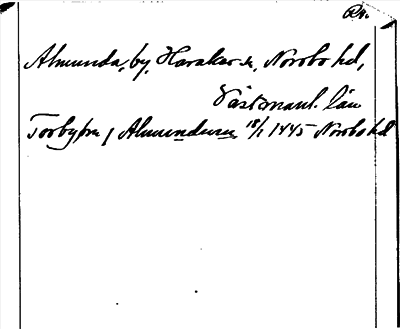 Almunda, by, Haraker sn, Norrbo hd,
Västmanl. län
Torbyfra j Almundum 18/1 1445 Norrbo hd